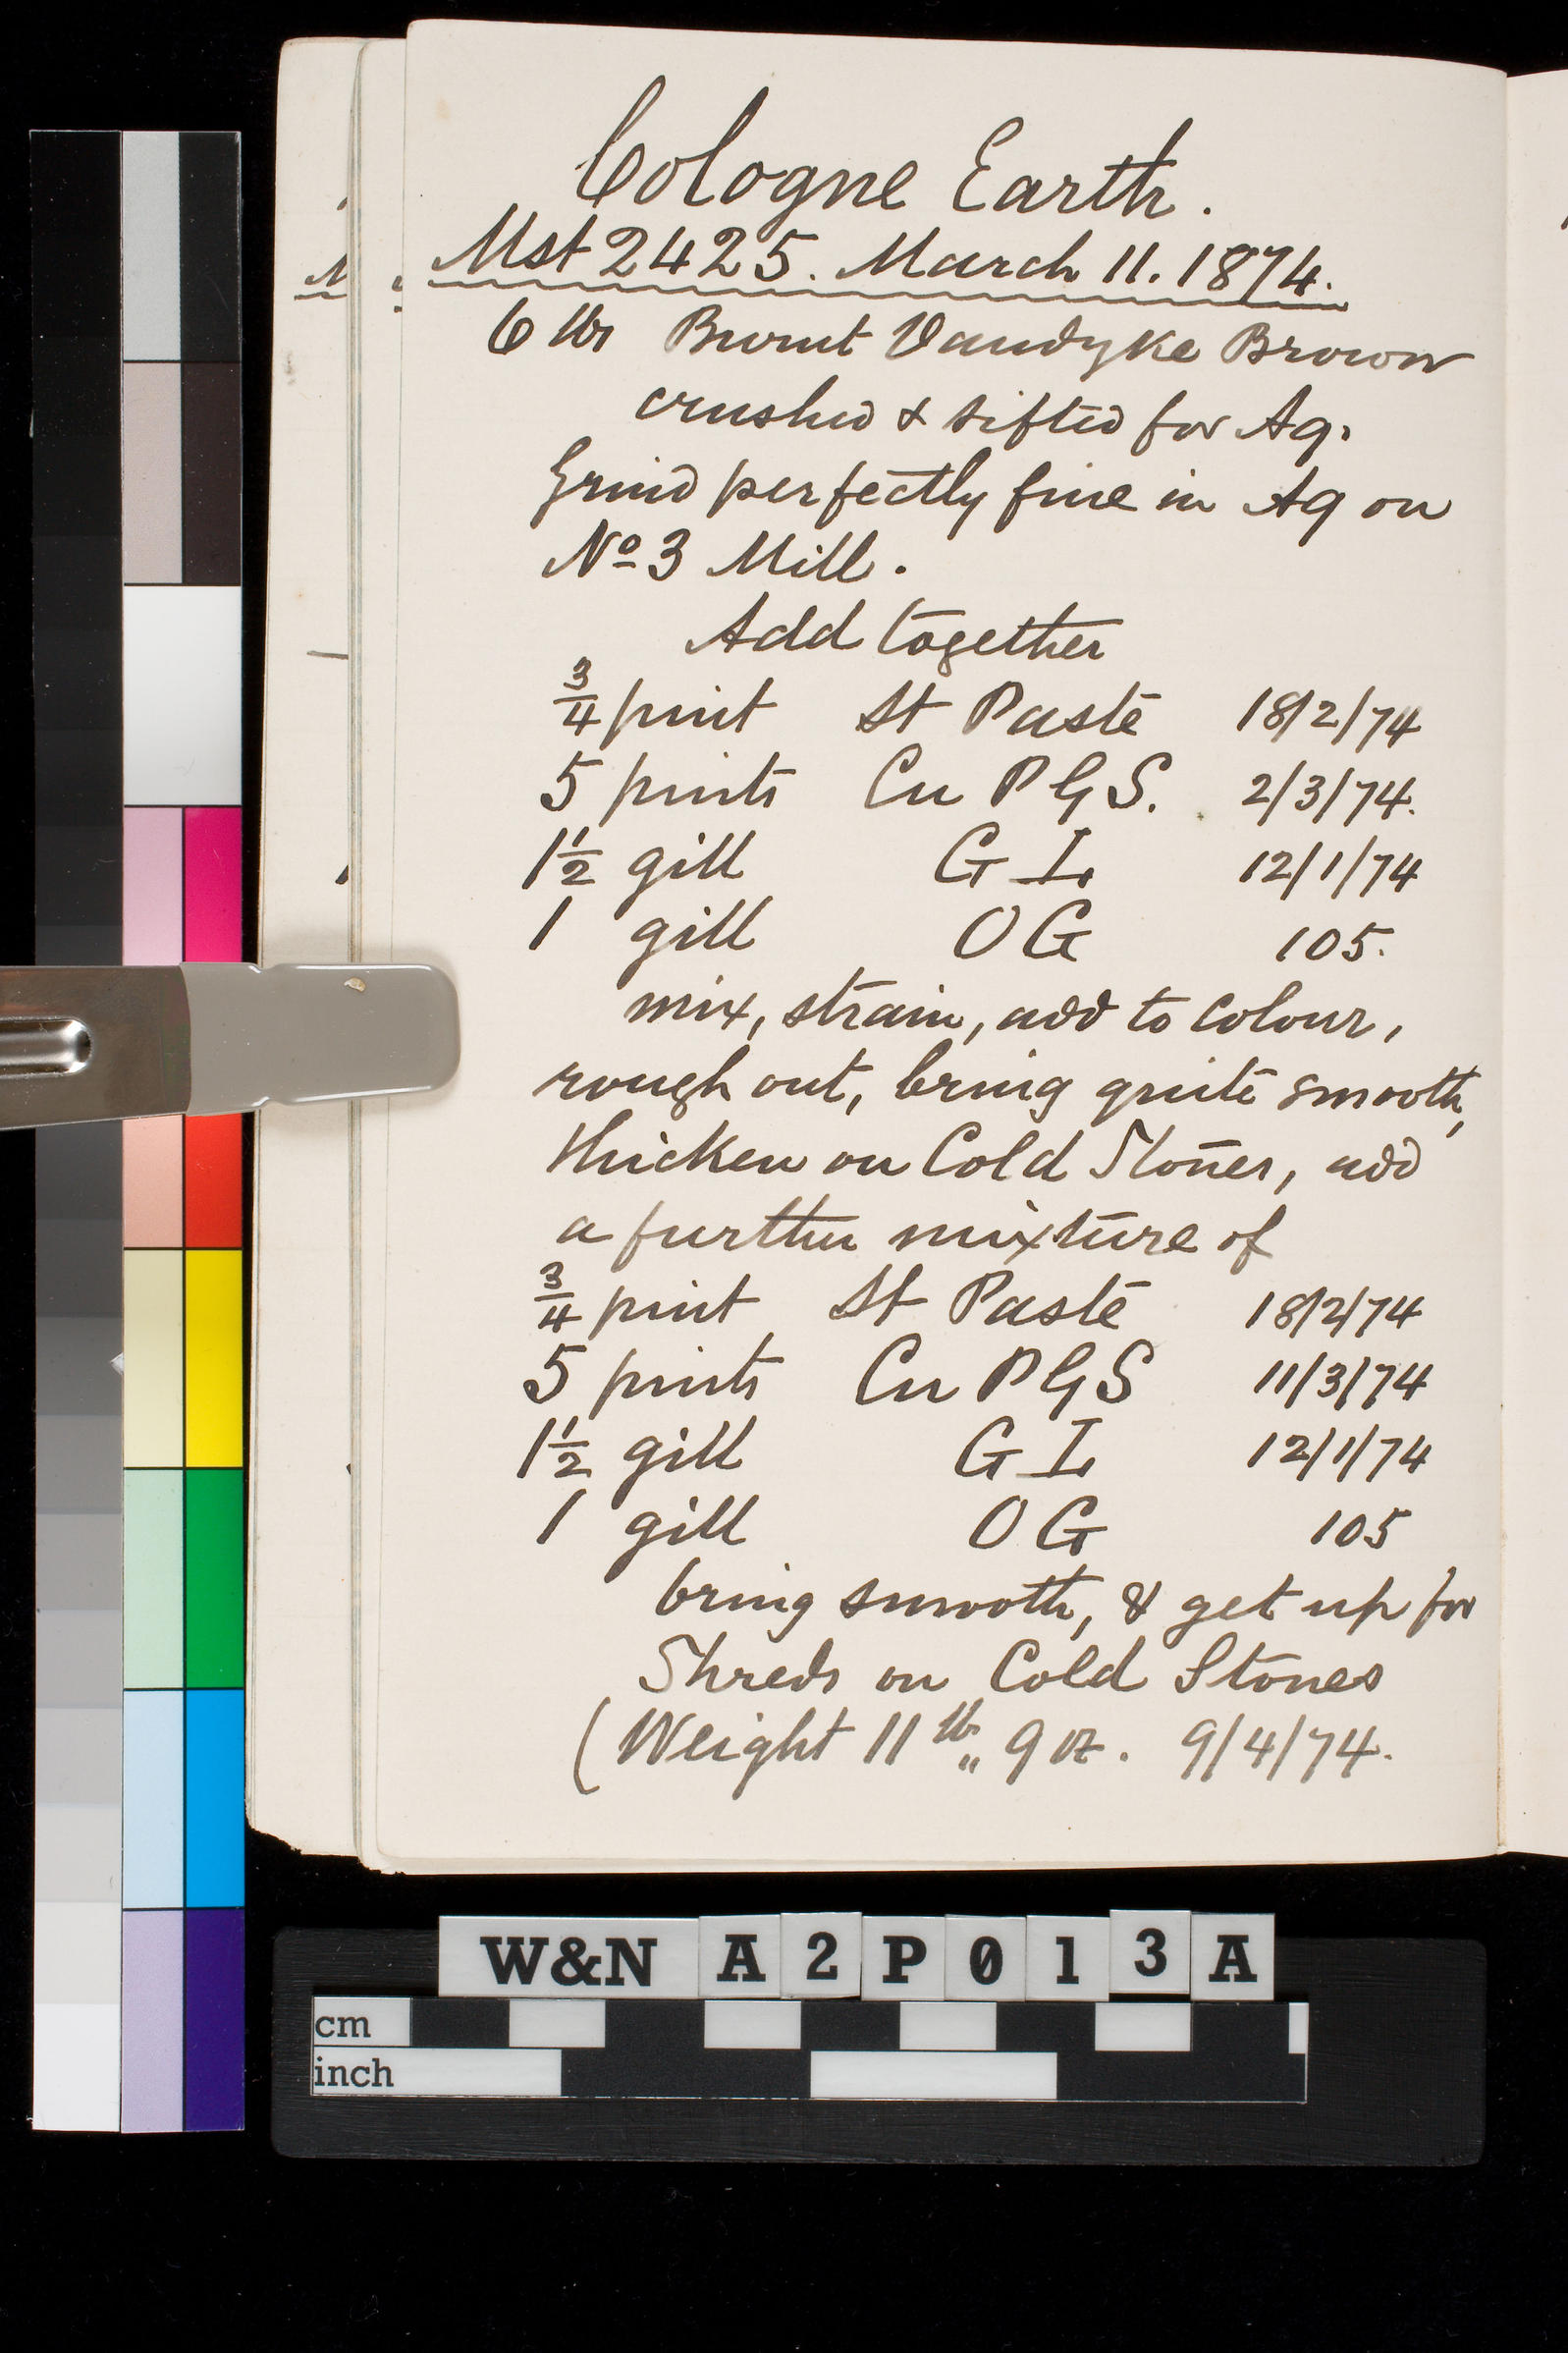 Cologne Earth.
Mst 2425. March 11. 1874.
6 lbs Burnt Vandyke Brown
crushed & sifted for Aq.
Grind perfectly fine in Aq on
No 3 Mill.
Add together
3/4 pint St Paste 18/2/74
5 pints Cu P G S. 2/3/74.
1 1/2 gill G I. 12/1/74
1 gill O G 105.
mix, strain, add to colour,
rough out, bring quite smooth,
thicken on Cold Stones, add
a further mixture of
3/4 pint St Paste 18/2/74
5 pints Cu P G S 11/3/74
1 1/2 gill G I. 12/1/74
1 gill O G 105
bring smooth, & get up for
Shreds on Cold Stones
(Weight 11 lb,, 9 oz. 9/4/74.
W&N A2P013A
cm
inch